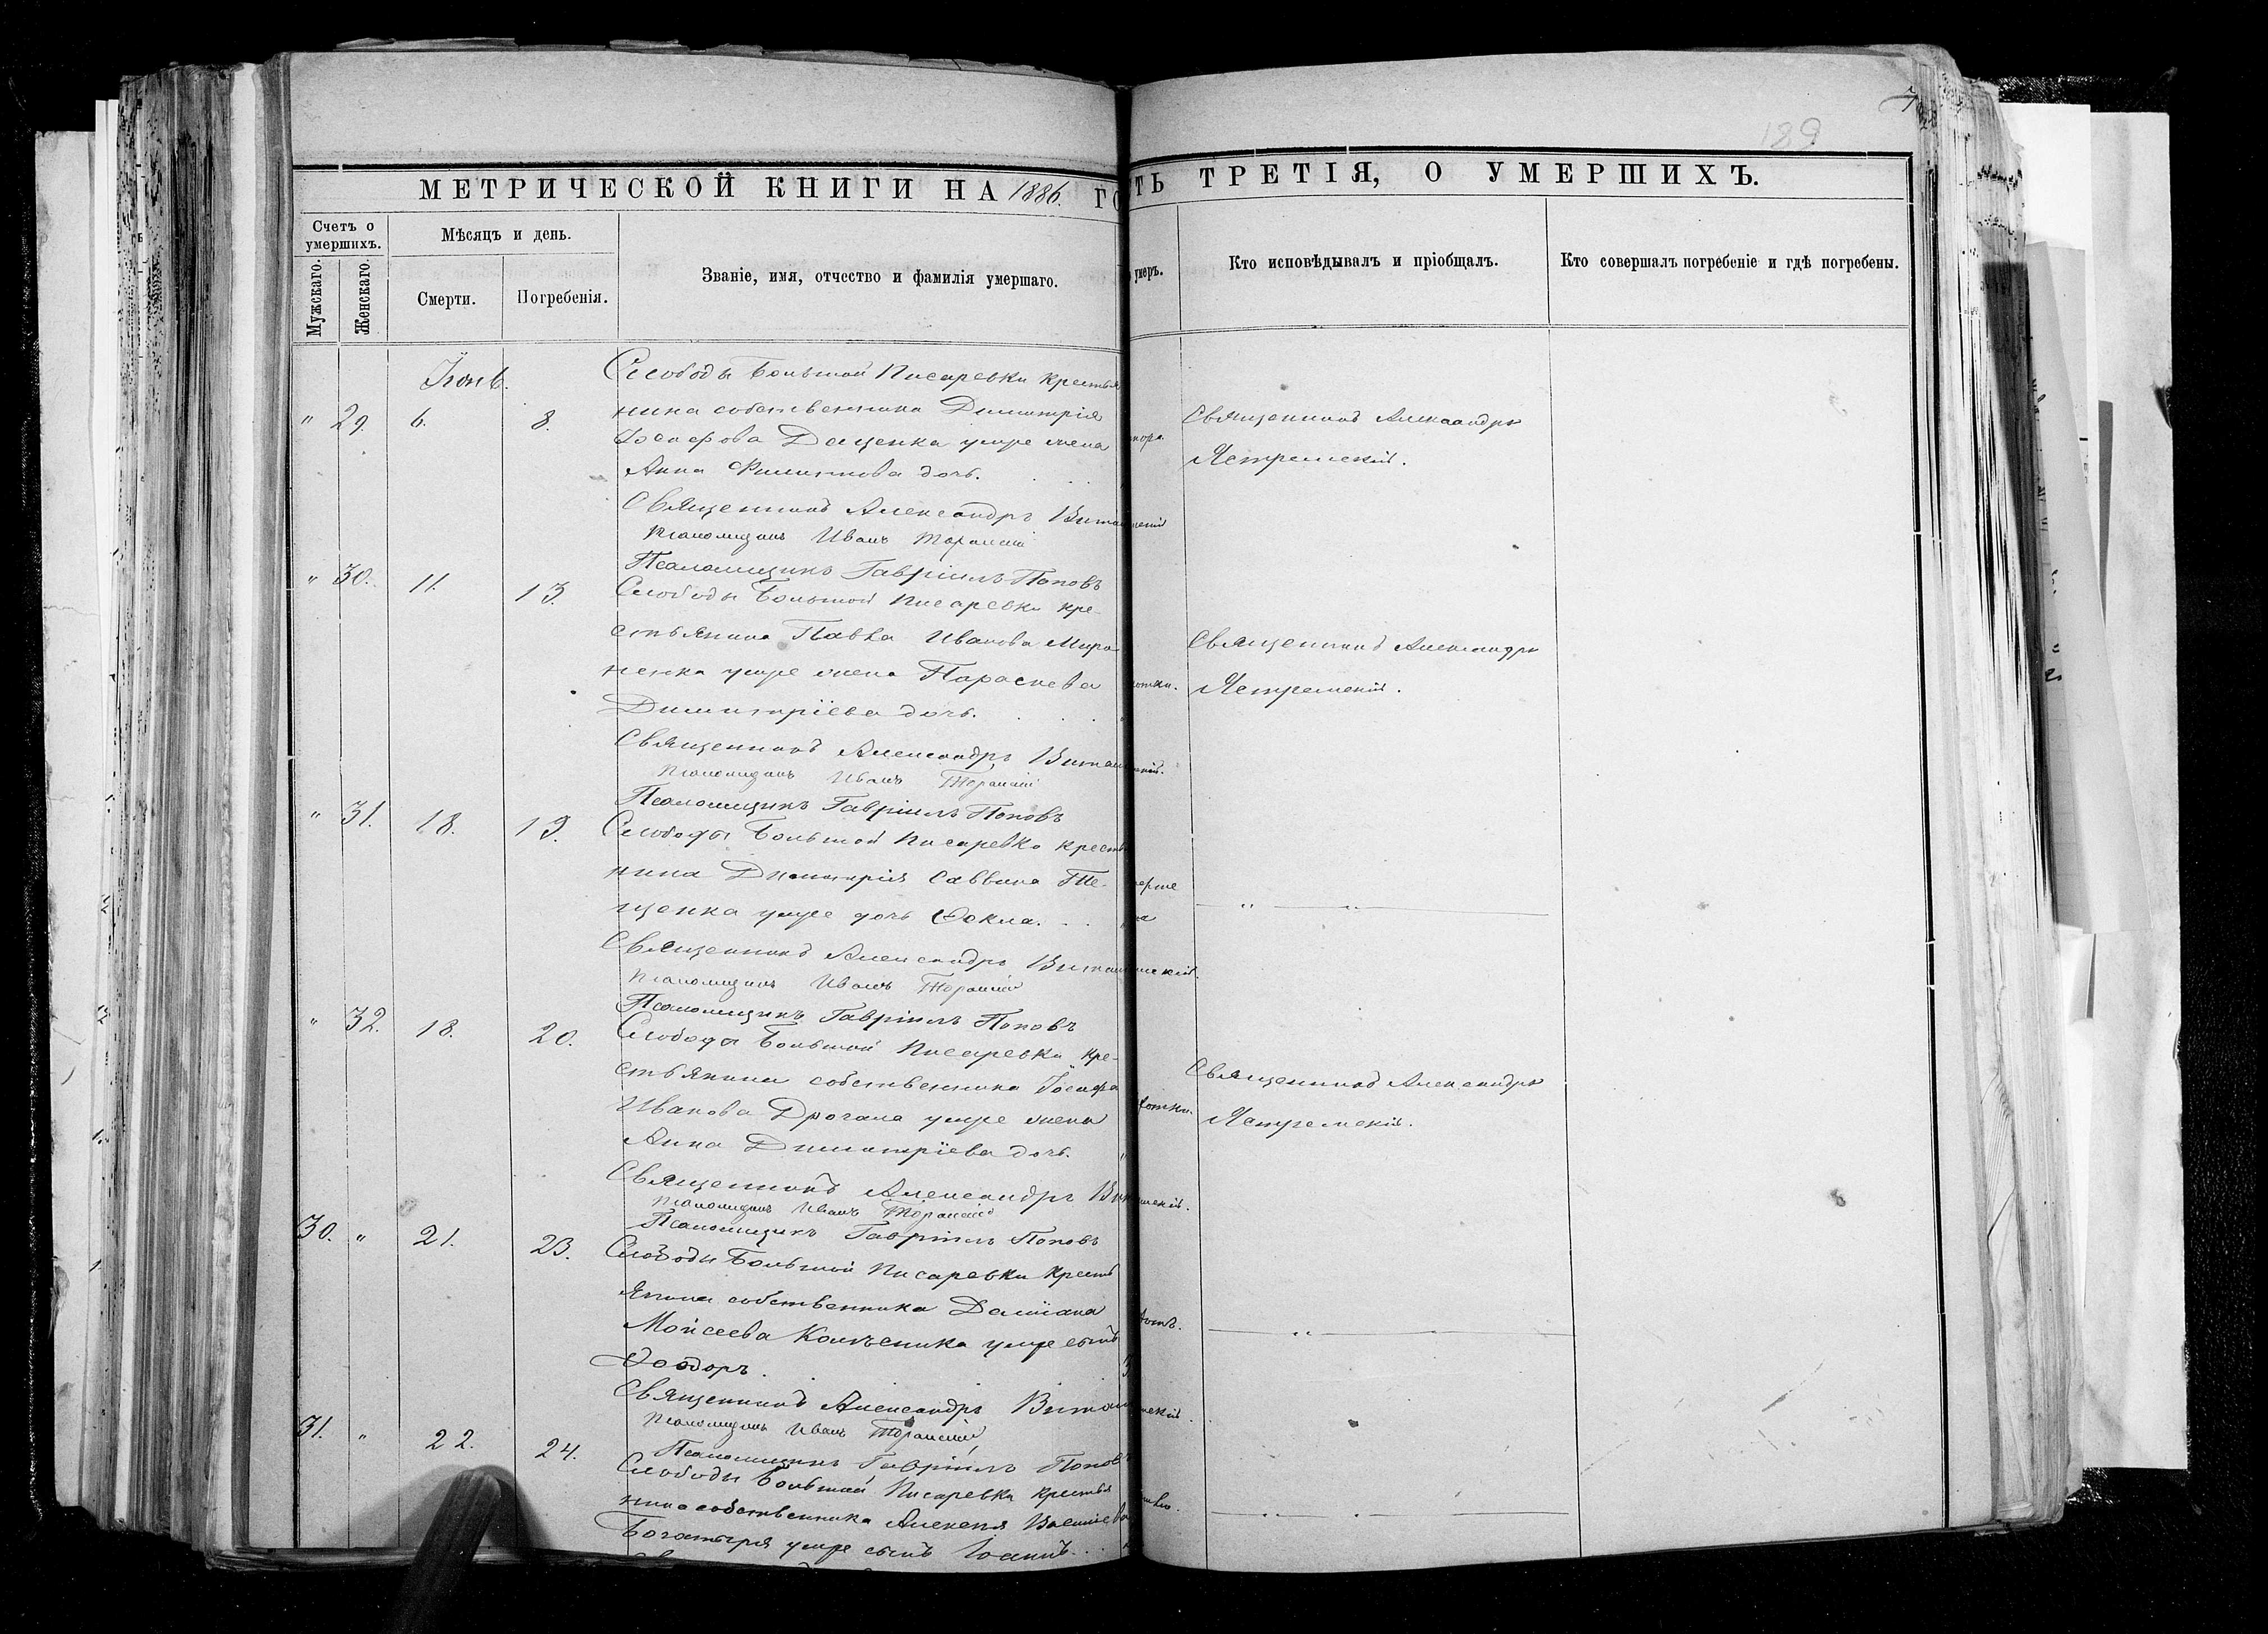 189
МЕТРИЧЕСКОЙ КНИГИ НА 1886. ГО
ТЬ ТРЕТІЯ, О УМЕРШИХЪ.
Счетъ о умершихъ.
Мужскаго.
Женскаго.
Мѣсяцъ и день.
Смерти.
Погребенія.
Званіе, имя, отчество и фамилія умершаго.
умеръ.
Кто исповѣдывалъ и пріобщалъ.
Кто совершалъ погребеніе и гдѣ погребены.
Іюнь.
" 29. 6. 8.
Слободы Большой Писаревки крестья
нина собственника Димитрія
Іосифова Даценка умре жена
Анна Филиппова дочь.
Священникъ Александръ
Ястремскій.
Священникъ Александръ Витал
Псаломщикъ Иванъ Торанскій
Псаломщикъ Гавріилъ Поповъ
" 30. 11. 13.
Слободы Большой Писаревки кре-
стьянина Павла Иванова Миро
ненка умре жена Параскева
Димитріева дочь.
Священникъ Александръ
Ястремскій.
Священникъ Александръ
Псаломщикъ Иванъ Торанскій
Псаломщикъ Гавріилъ Поповъ
" 31. 18. 19.
Слободы Большой Писаревки кресть
нина Димитрія Саввина Те-
щенка умре дочь Ѳекла.
Священникъ Александръ
Псаломщикъ Иванъ Торанскій
Псаломщикъ Гавріилъ Поповъ
" 32. 18. 20.
Слободы Большой Писаревки кре-
стьянина собственника Іосифа
Иванова Дрогана умре жена
Анна Димитріева дочь.
Священникъ Александръ
Ястремскій.
Священникъ Александръ
Псаломщикъ Иванъ Торанскій
Псаломщикъ Гавріилъ Поповъ
30. " 21. 23.
Слободы Большой Писаревки кресть
янина собственника Даміана
Мойсеева Колѣсника умре сынъ
Ѳеодоръ.
Священникъ Александръ
Псаломщикъ Иванъ Торанскій
Псаломщикъ Гавріилъ Поповъ
31. " 22. 24.
Слободы Большой Писаревки крестья
нина собственника Алексея Василіева
Богатыря умре сынъ Іоаннъ.